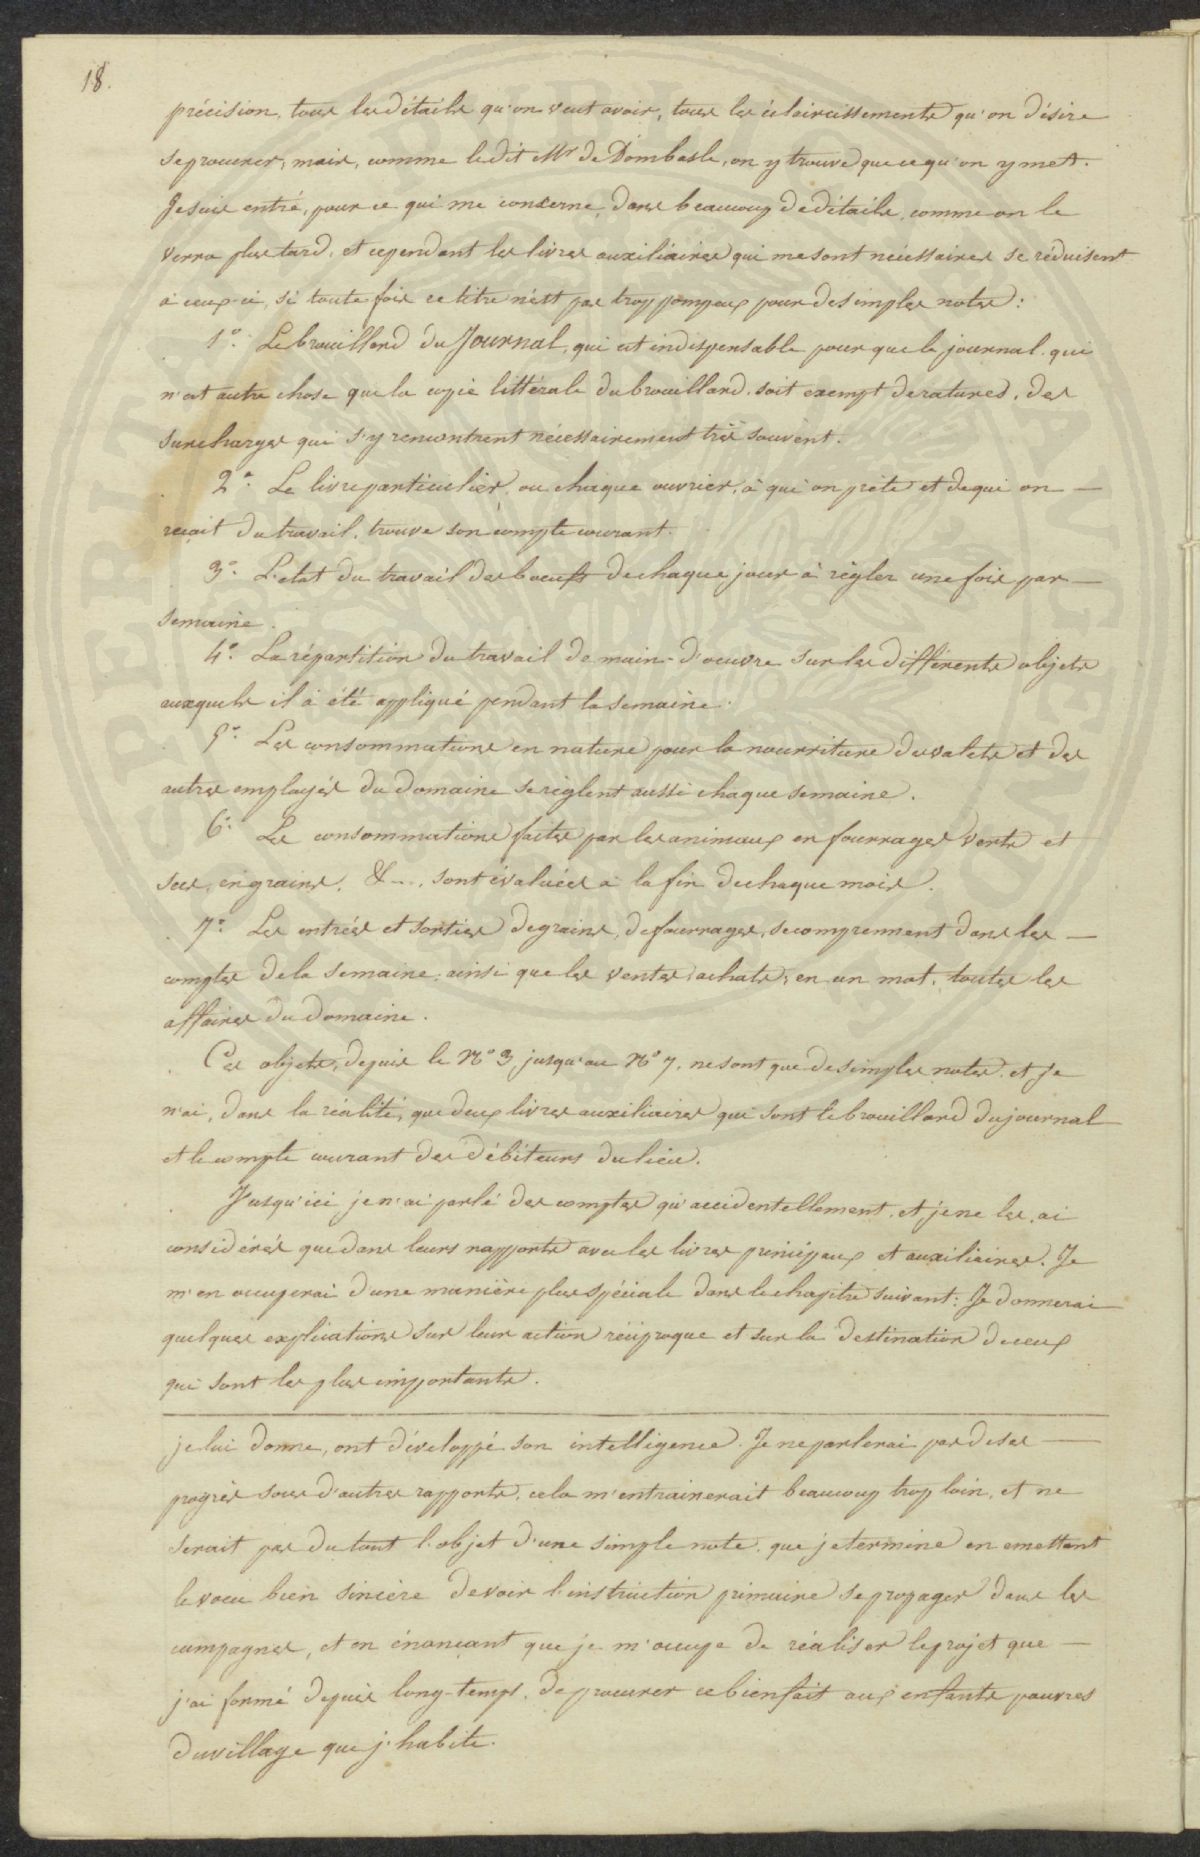 18.
précision, tous les détails qu'on veut avoir, tous les éclaircissements qu'on désire
se procurer; mais, comme le dit Mr de Dombasle, on y trouve que ce qu'on y met.
Je suis entré, pour ce qui me concerne, dans beaucoup de détails, comme on le
verra plus tard, et cependant les livres auxiliaires qui me sont nécessaires se réduisent
à ceux-ci, si toute fois ce titre n'est pas trop pompeux pour de simples notes:
1o. Le brouillard du Journal, qui est indispensable pour que le journal, qui
n'est autre chose que la copie littérale du brouillard, soit exempt de ratures, des
surcharges qui s'y rencontrent nécessairement très souvent.
2o. Le livre particulier, ou chaque ouvrier, à qui on prête et de qui on —
reçoit du travail, trouve son compte courant.
3o. L'etat du travail des boeufs de chaque jour à règler une fois par —
semaine.
4o. La répartition du travail de main-d'oeuvre sur les différents objets
auxquels il à été appliqué pendant la semaine.
5o. Les consommations en nature pour la nourriture des valets et des
autres employés du domaine se règlent aussi chaque semaine.
6o. Les consommations faites par les animaux en fourrages verts et
secs, en grains, &..., sont évaluées à la fin de chaque mois.
7o. Les entrées et sorties de grains, de fourrages, se comprennent dans les —
comptes de la semaine, ainsi que les ventes, achats, en un mot, toutes les
affaires du domaine.
Ces objets, depuis le No 3 jusqu'au No 7, ne sont que de simples notes, et je
n'ai, dans la réalité, que deux livres auxiliaires qui sont le brouillard du journal
et le compte courant des débiteurs du lieu.
Jusqu'ici je n'ai parlé des comptes qu'accidentellement, et je ne les ai
considérés que dans leurs rapports avec les livres principaux et auxiliaires. Je
m'en occuperai d'une manière plus spéciale dans le chapitre suivant: Je donnerai
quelques explications sur leur action réciproque et sur la destination de ceux
qui sont les plus importants.
je lui donne, ont développé son intelligence. Je ne parlerai pas de ses —
progrès sous d'autres rapports, cela m'entrainerait beaucoup trop loin, et ne
serait pas du tout l'objet d'une simple note, que je termine en emettant
le voeu bien sincère de voir l'instruction primaire se propager dans les
campagnes, et en énonçant que je m'occupe de réaliser le projet que —
j'ai formé depuis long-temps, de procurer ce bienfait aux enfants pauvres
du village que j'habite.